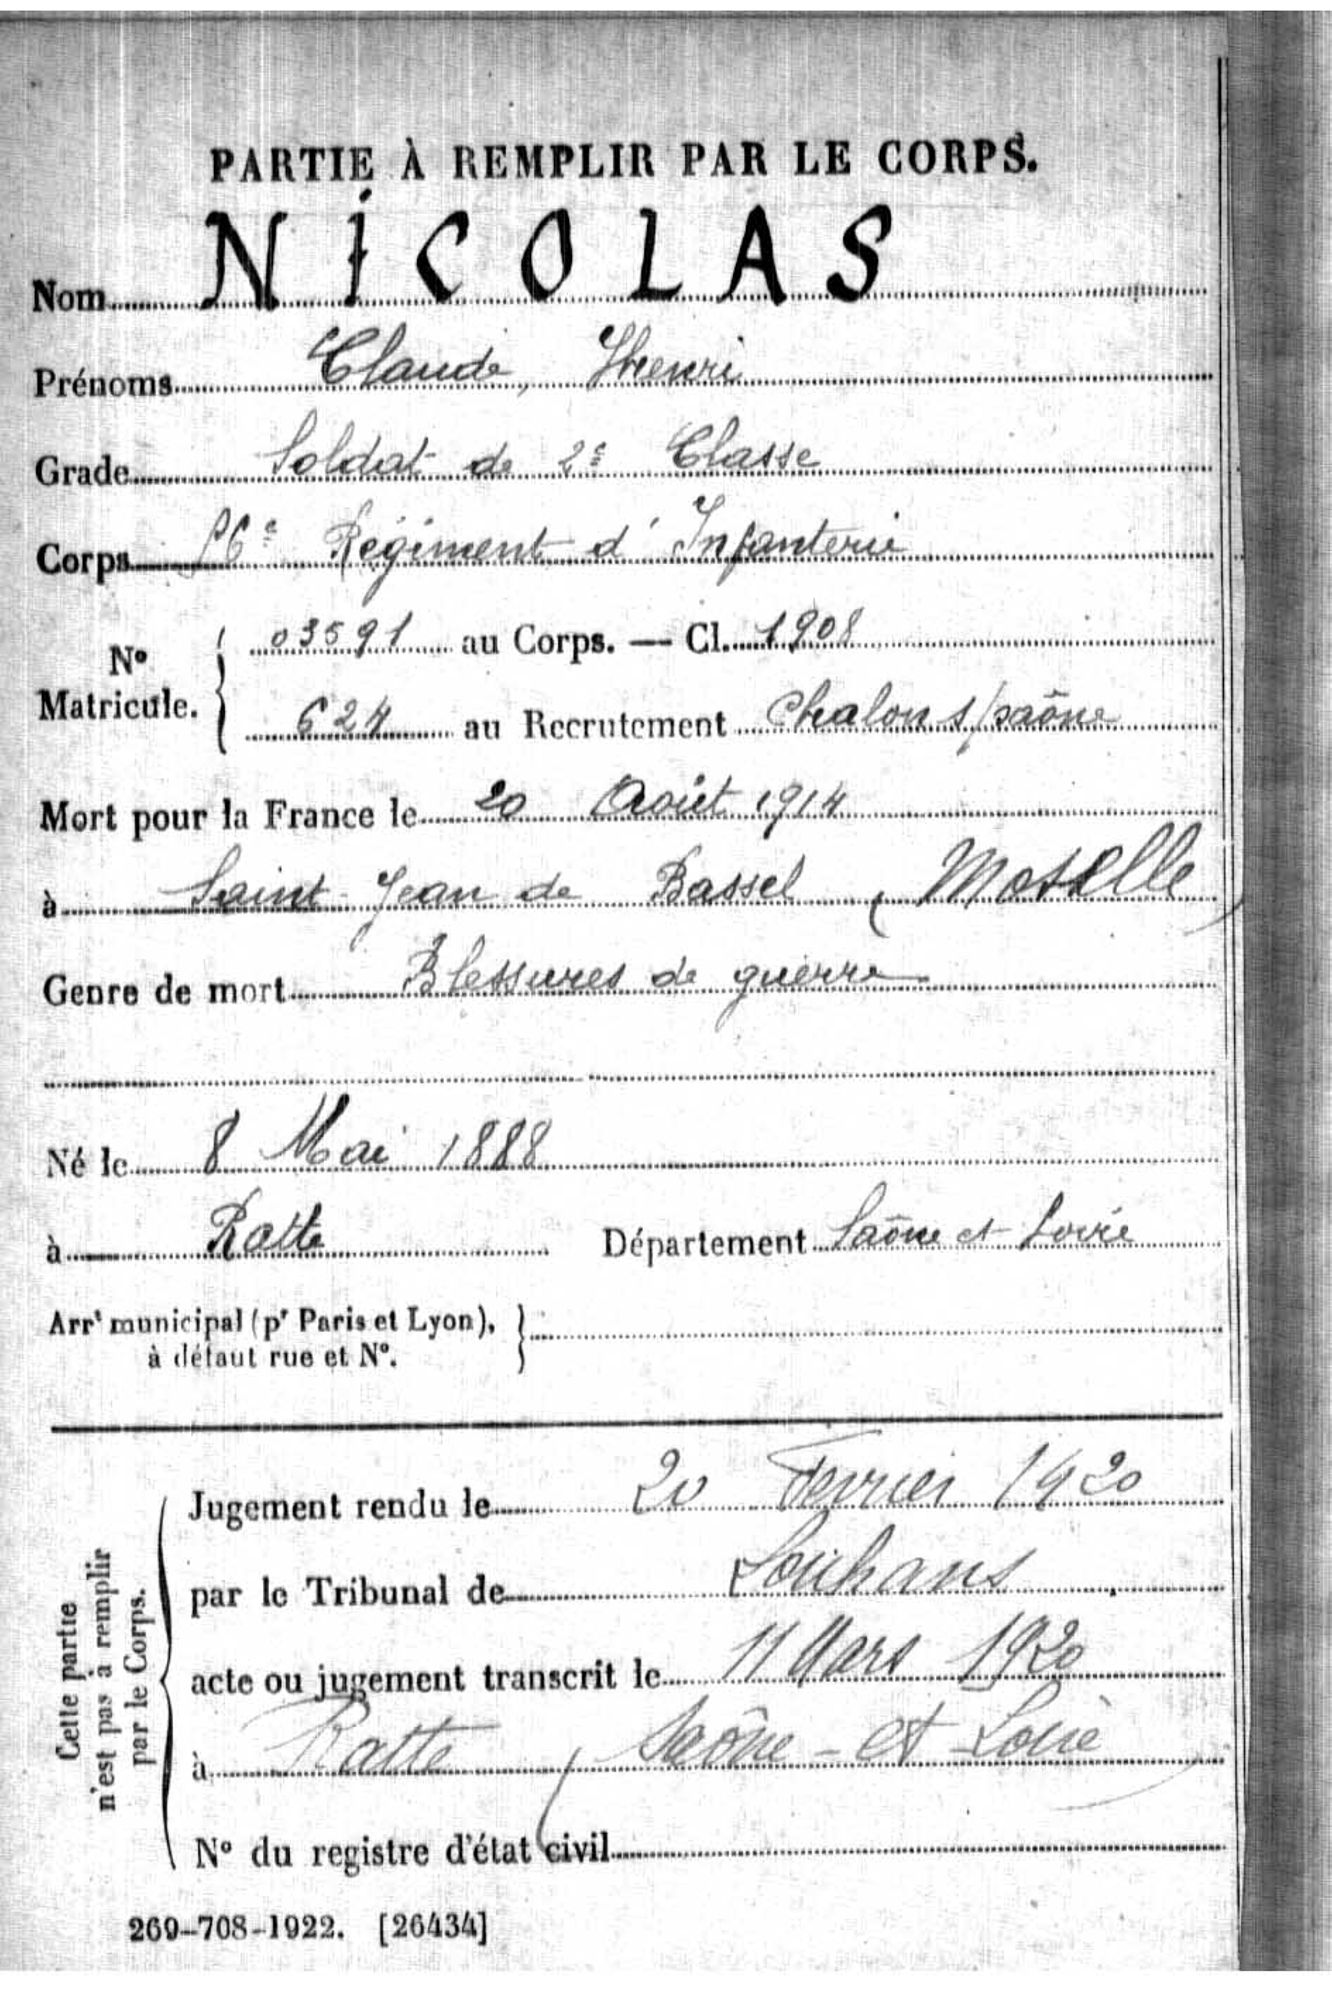 PARTIE À REMPLIR PAR LE CORPS.
Nom NICOLAS
Prénoms Claude, Henri
Grade Soldat de 2e Classe
Corps Régiment d'Infanterie
N° Matricule. 03591 au Corps. — Cl. 1908
624 au Recrutement Chalon s/saône
Mort pour la France le 20 Août 1914
à Saint-Jean de Bassel (Moselle)
Genre de mort Blessures de guerre
Né le 8 Mai 1888
à Ratte Département Saône et Loire
Arrt municipal (pr Paris et Lyon),
à défaut rue et N°.
Cette partie
n'est pas à remplir
par le Corps.
Jugement rendu le 20 Fevrier 1920
par le Tribunal de Louhans
acte ou jugement transcrit le 11 Mars 1920
à Ratte (Saône-et-Loire)
N° du registre d'état civil
269-708-1922. [26434]